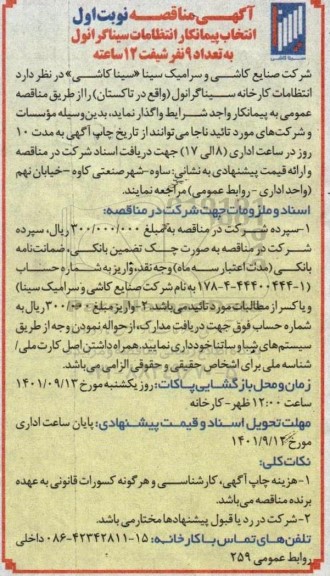 آگهی مناقصه نوبت اول
انتخاب پیمانکار انتظامات سیناگرانول
به تعداد ۹ نفر شیفت ۱۲ ساعته
سینا کاشی
شرکت صنایع کاشی و سرامیک سینا «سینا کاشی» در نظر دارد
انتظامات کارخانه سیناگرانول (واقع در تاکستان) را از طریق مناقصه
عمومی به پیمانکار واجد شرایط واگذار نماید، بدین‌وسیله مؤسسات
و شرکت‌های مورد تائید ناجا می‌توانند از تاریخ چاپ آگهی به مدت ۱۰
روز در ساعت اداری (۸ الی ۱۷) جهت دریافت اسناد شرکت در مناقصه
و ارائه قیمت پیشنهادی به نشانی: ساوه-شهر صنعتی کاوه-خیابان نهم
(واحد اداری - روابط عمومی) مراجعه نمایند.
اسناد و ملزومات جهت شرکت در مناقصه:
۱-سپرده شرکت در مناقصه به مبلغ ۳۰۰/۰۰۰/۰۰۰ ریال، سپرده
شرکت در مناقصه به صورت چک تضمین بانکی، ضمانت‌نامه
بانکی (مدت اعتبار سه ماه) وجه نقد، واریز به شماره حساب
(۱-۴۴۴۰۰۴۴۴-۴-۱۷۸ به نام شرکت صنایع کاشی و سرامیک سینا)
و یا کسر از مطالبات مورد تائید می‌باشد. ۲- واریز مبلغ ۳۰۰/۰۰۰ ریال به
شماره حساب فوق جهت دریافت مدارک، از حواله نمودن وجه از طریق
سیستم‌های شبا و ساتنا خودداری نمایید. همراه داشتن اصل کارت ملی/
شناسه ملی برای اشخاص حقیقی و حقوقی الزامی می‌باشد.
زمان و محل بازگشایی پاکات: روز یکشنبه مورخ ۱۴۰۱/۰۹/۱۳
ساعت ۱۲:۰۰ ظهر - کارخانه
مهلت تحویل اسناد و قیمت پیشنهادی: پایان ساعت اداری
مورخ ۱۴۰۱/۹/۱۲
نکات کلی:
۱-هزینه چاپ آگهی، کارشناسی و هرگونه کسورات قانونی به عهده
برنده مناقصه می‌باشد.
۲-شرکت در رد یا قبول پیشنهادها مختار می‌باشد.
تلفن‌های تماس با کارخانه: ۱۵-۴۲۳۴۲۸۱۱-۰۸۶ داخلی
روابط عمومی ۲۵۹